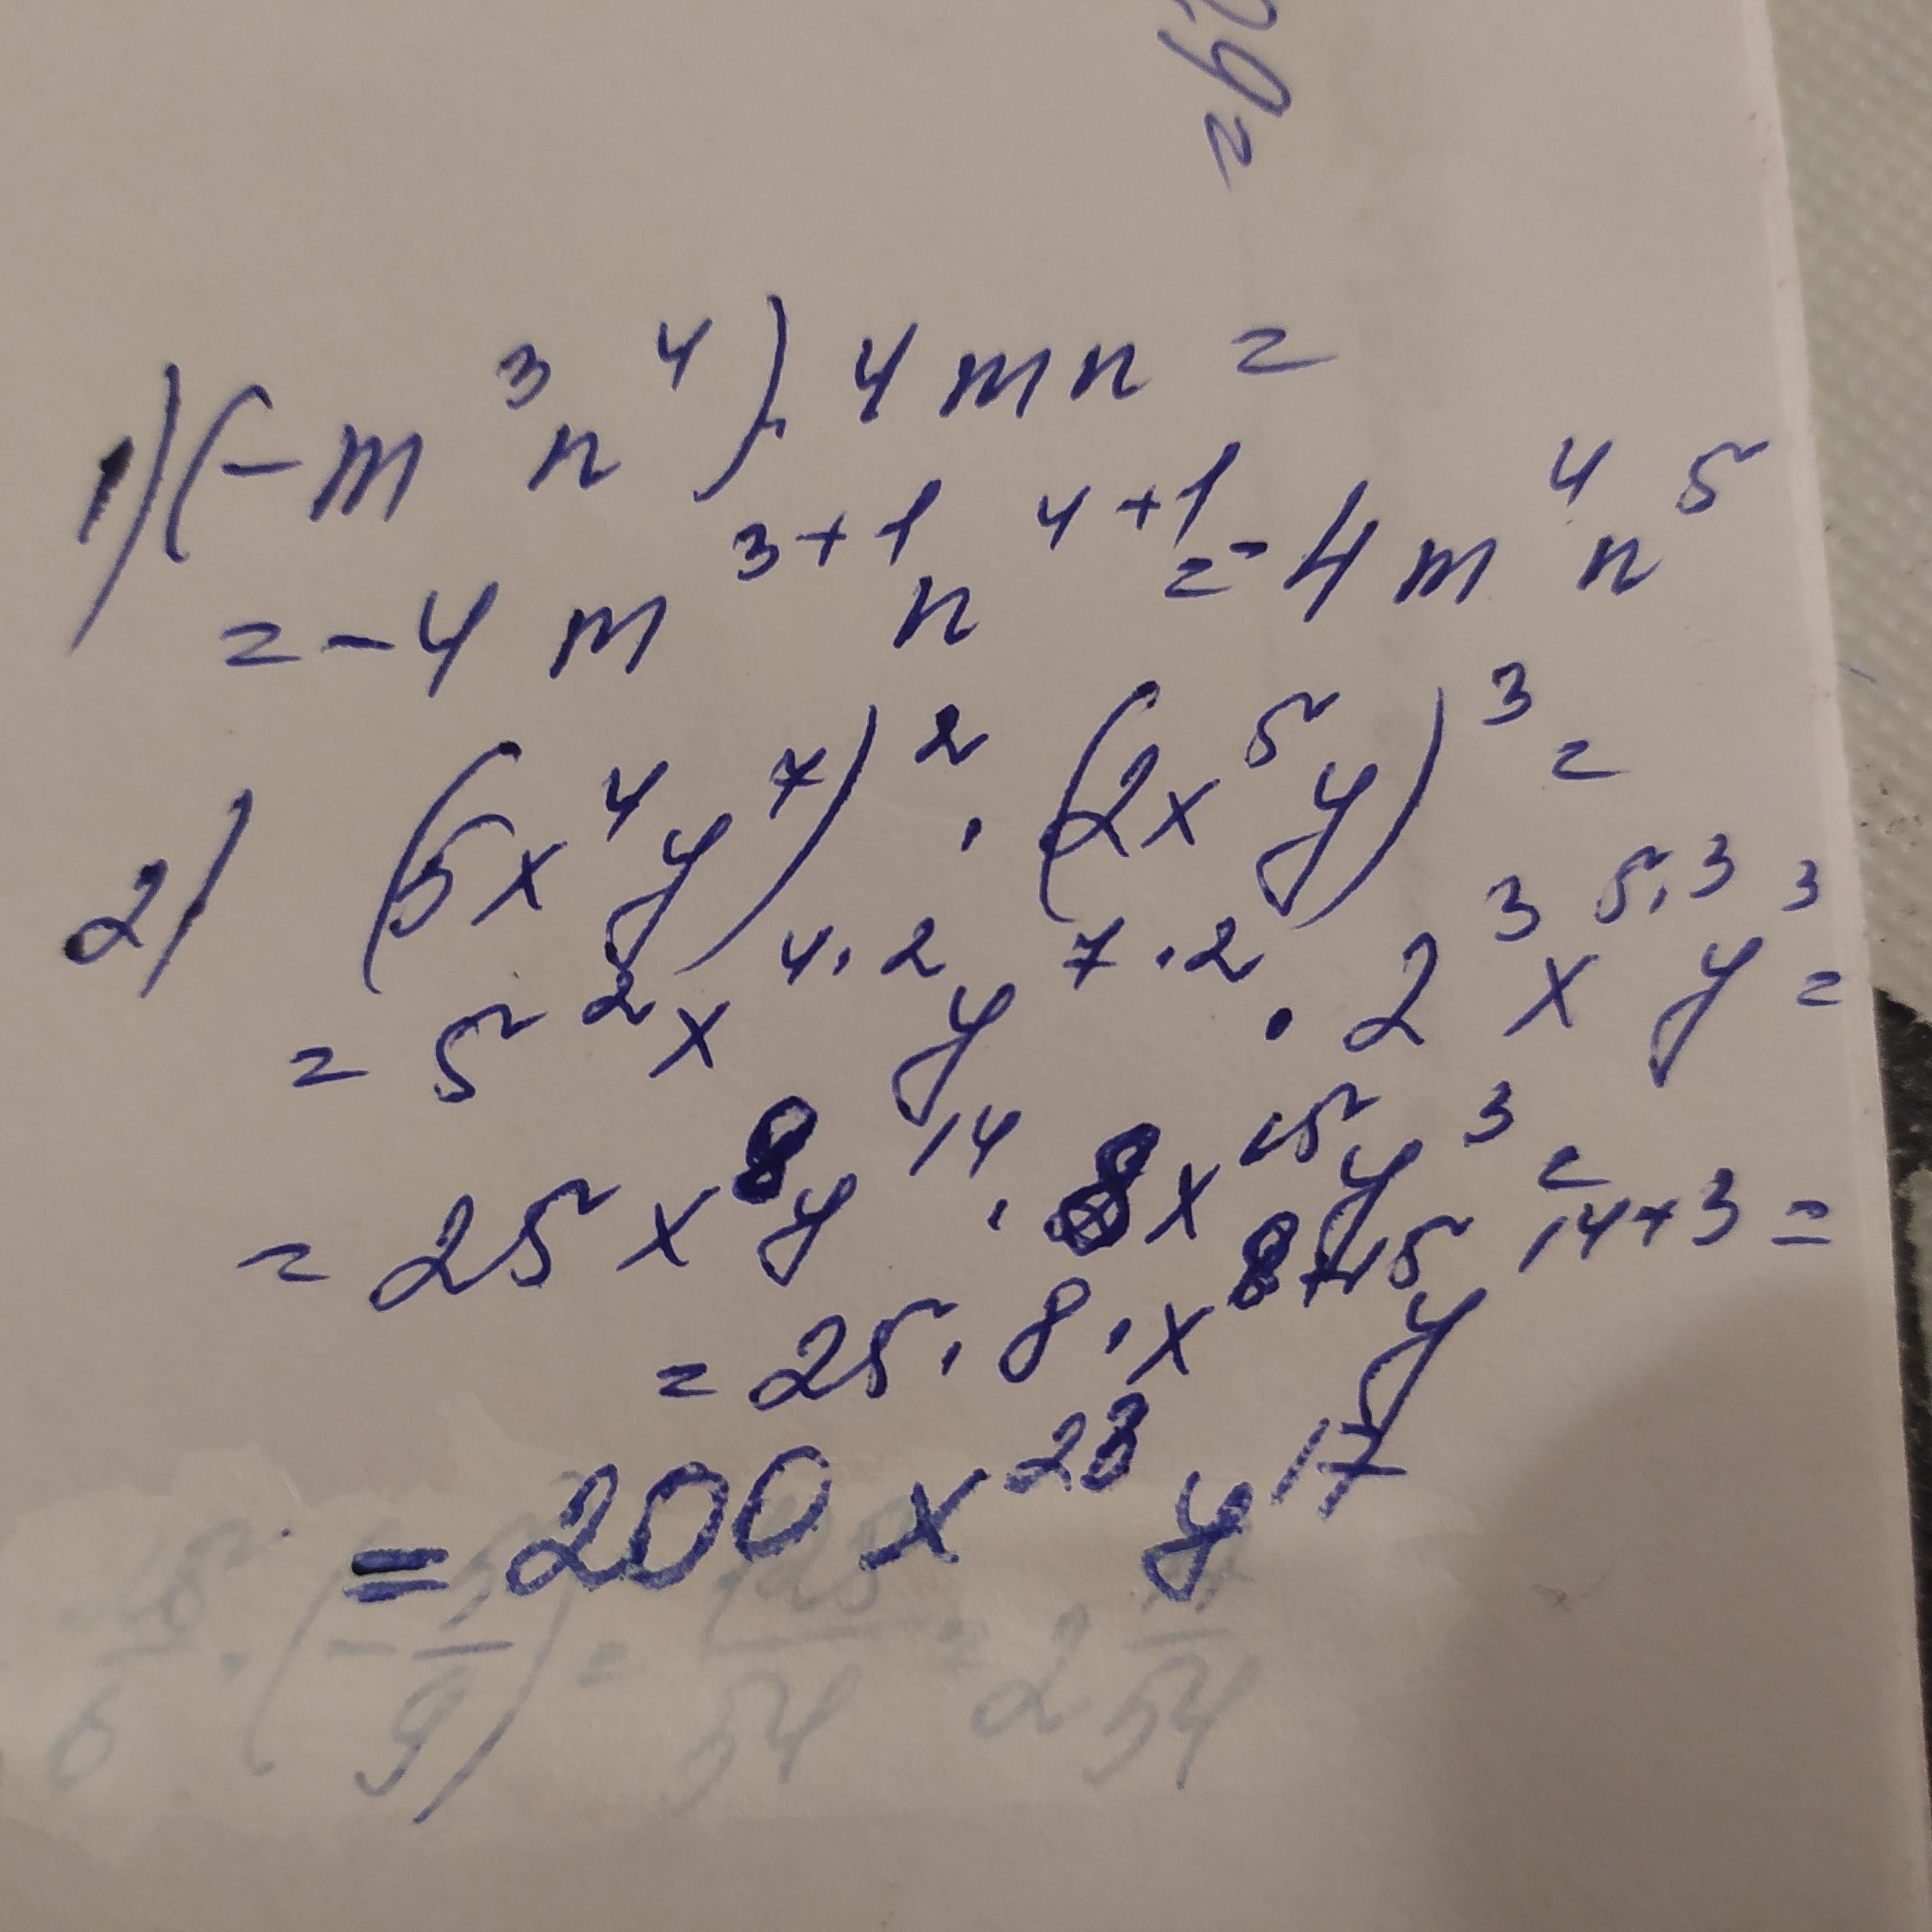 1) (-m³n⁴)·4mn =
= -4 m³⁺¹ n⁴⁺¹ = -4m⁴n⁵
2) (5x⁴y⁷)² · (2x⁵y)³ =
= 5² x⁴·² y⁷·² · 2³ x⁵·³ y³ =
= 25 x⁸ y¹⁴ · 8 x¹⁵ y³ =
= 25 · 8 · x⁸⁺¹⁵ y¹⁴⁺³ =
= 200 x²³ y¹⁷